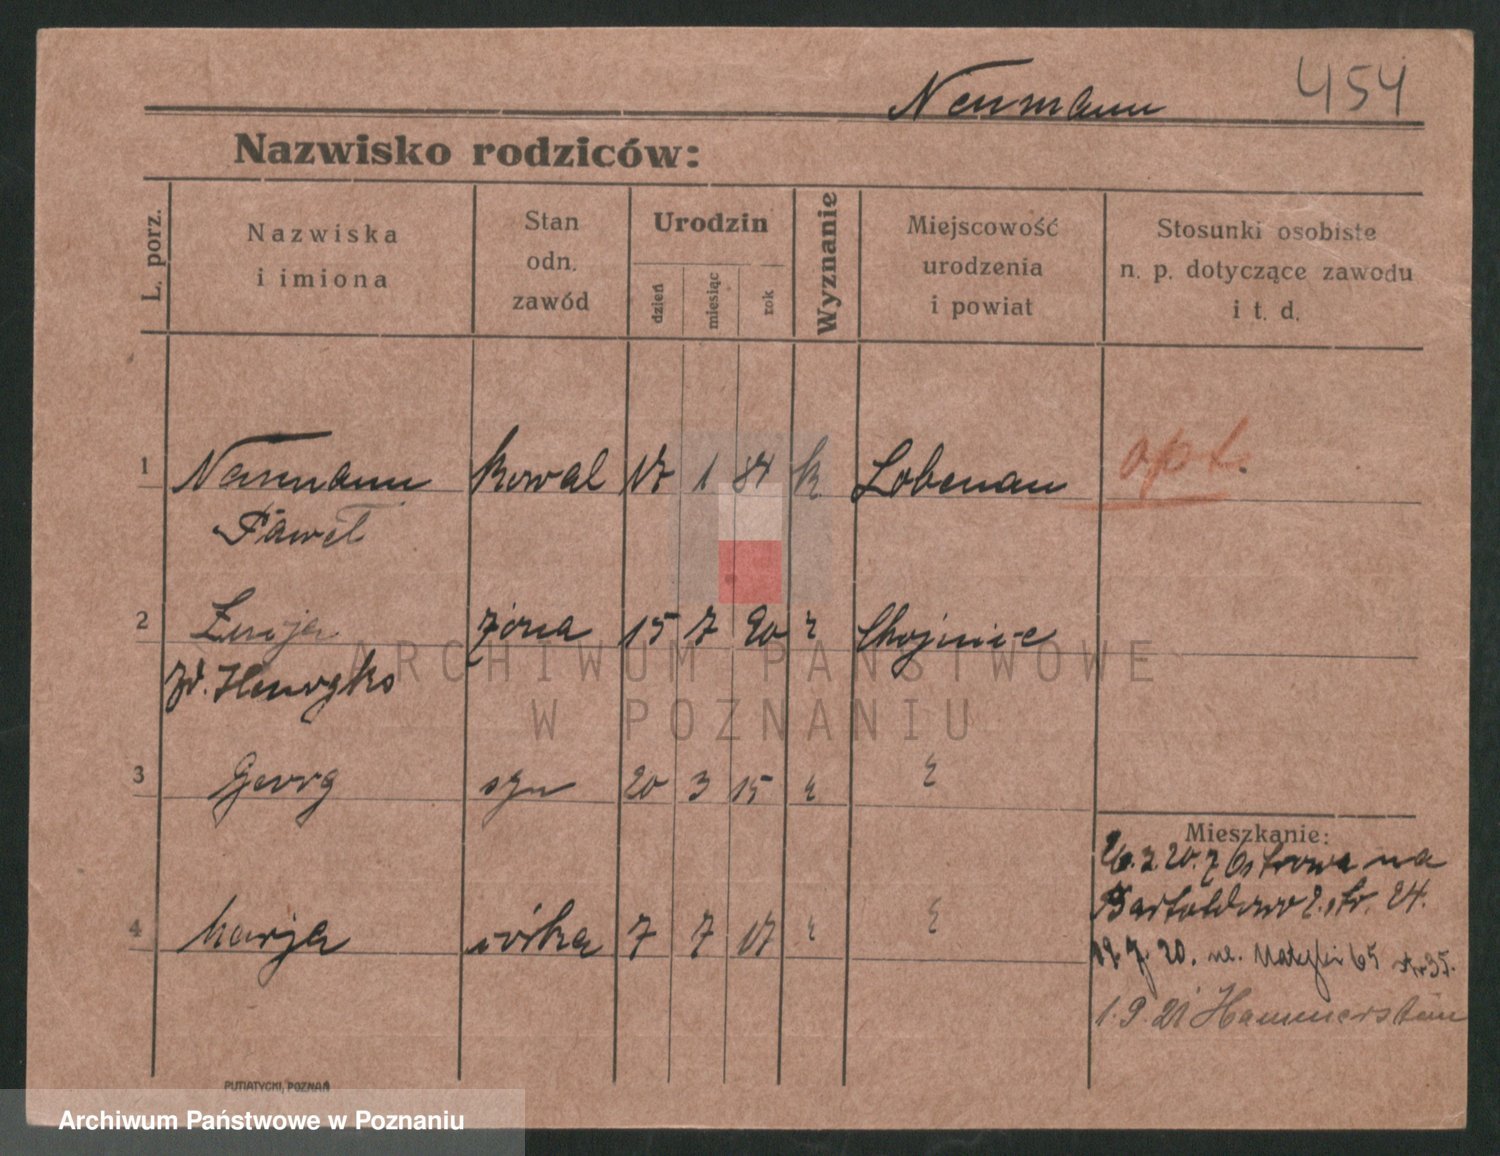 Neumann 454
Nazwisko rodziców:
L. porz.
Nazwiska i imiona
Stan odn. zawód
Urodzin
dzień miesiąc rok
Wyznanie
Miejscowość urodzenia i powiat
Stosunki osobiste n. p. dotyczące zawodu i t. d.
1 Neumann kowal 17 1 84 k Lobenau opt.
Paweł
2 żona 15 7 90 Chojnice
3 Georg syn 20 3 15
4 Marja córka 7 7 17
Mieszkanie:
20. z Ostrowa na
24.
20. 65
1.9.21 Hammerstein
PUTIATYCKI, POZNAŃ
ARCHIWUM PAŃSTWOWE
W POZNANIU
Archiwum Państwowe w Poznaniu